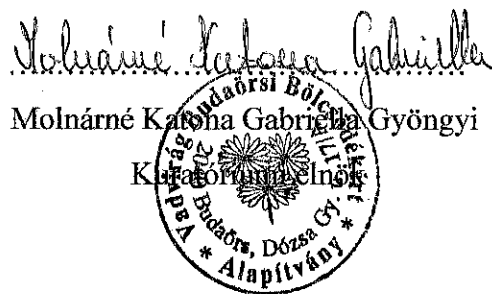 Molnárné Katona Gabriella
Molnárné Katona Gabriella Gyöngyi
Kuratórium elnök
Vadvirág Budaörsi Bölcsődékért
Alapítvány *
Budaörs, Dózsa Gy.